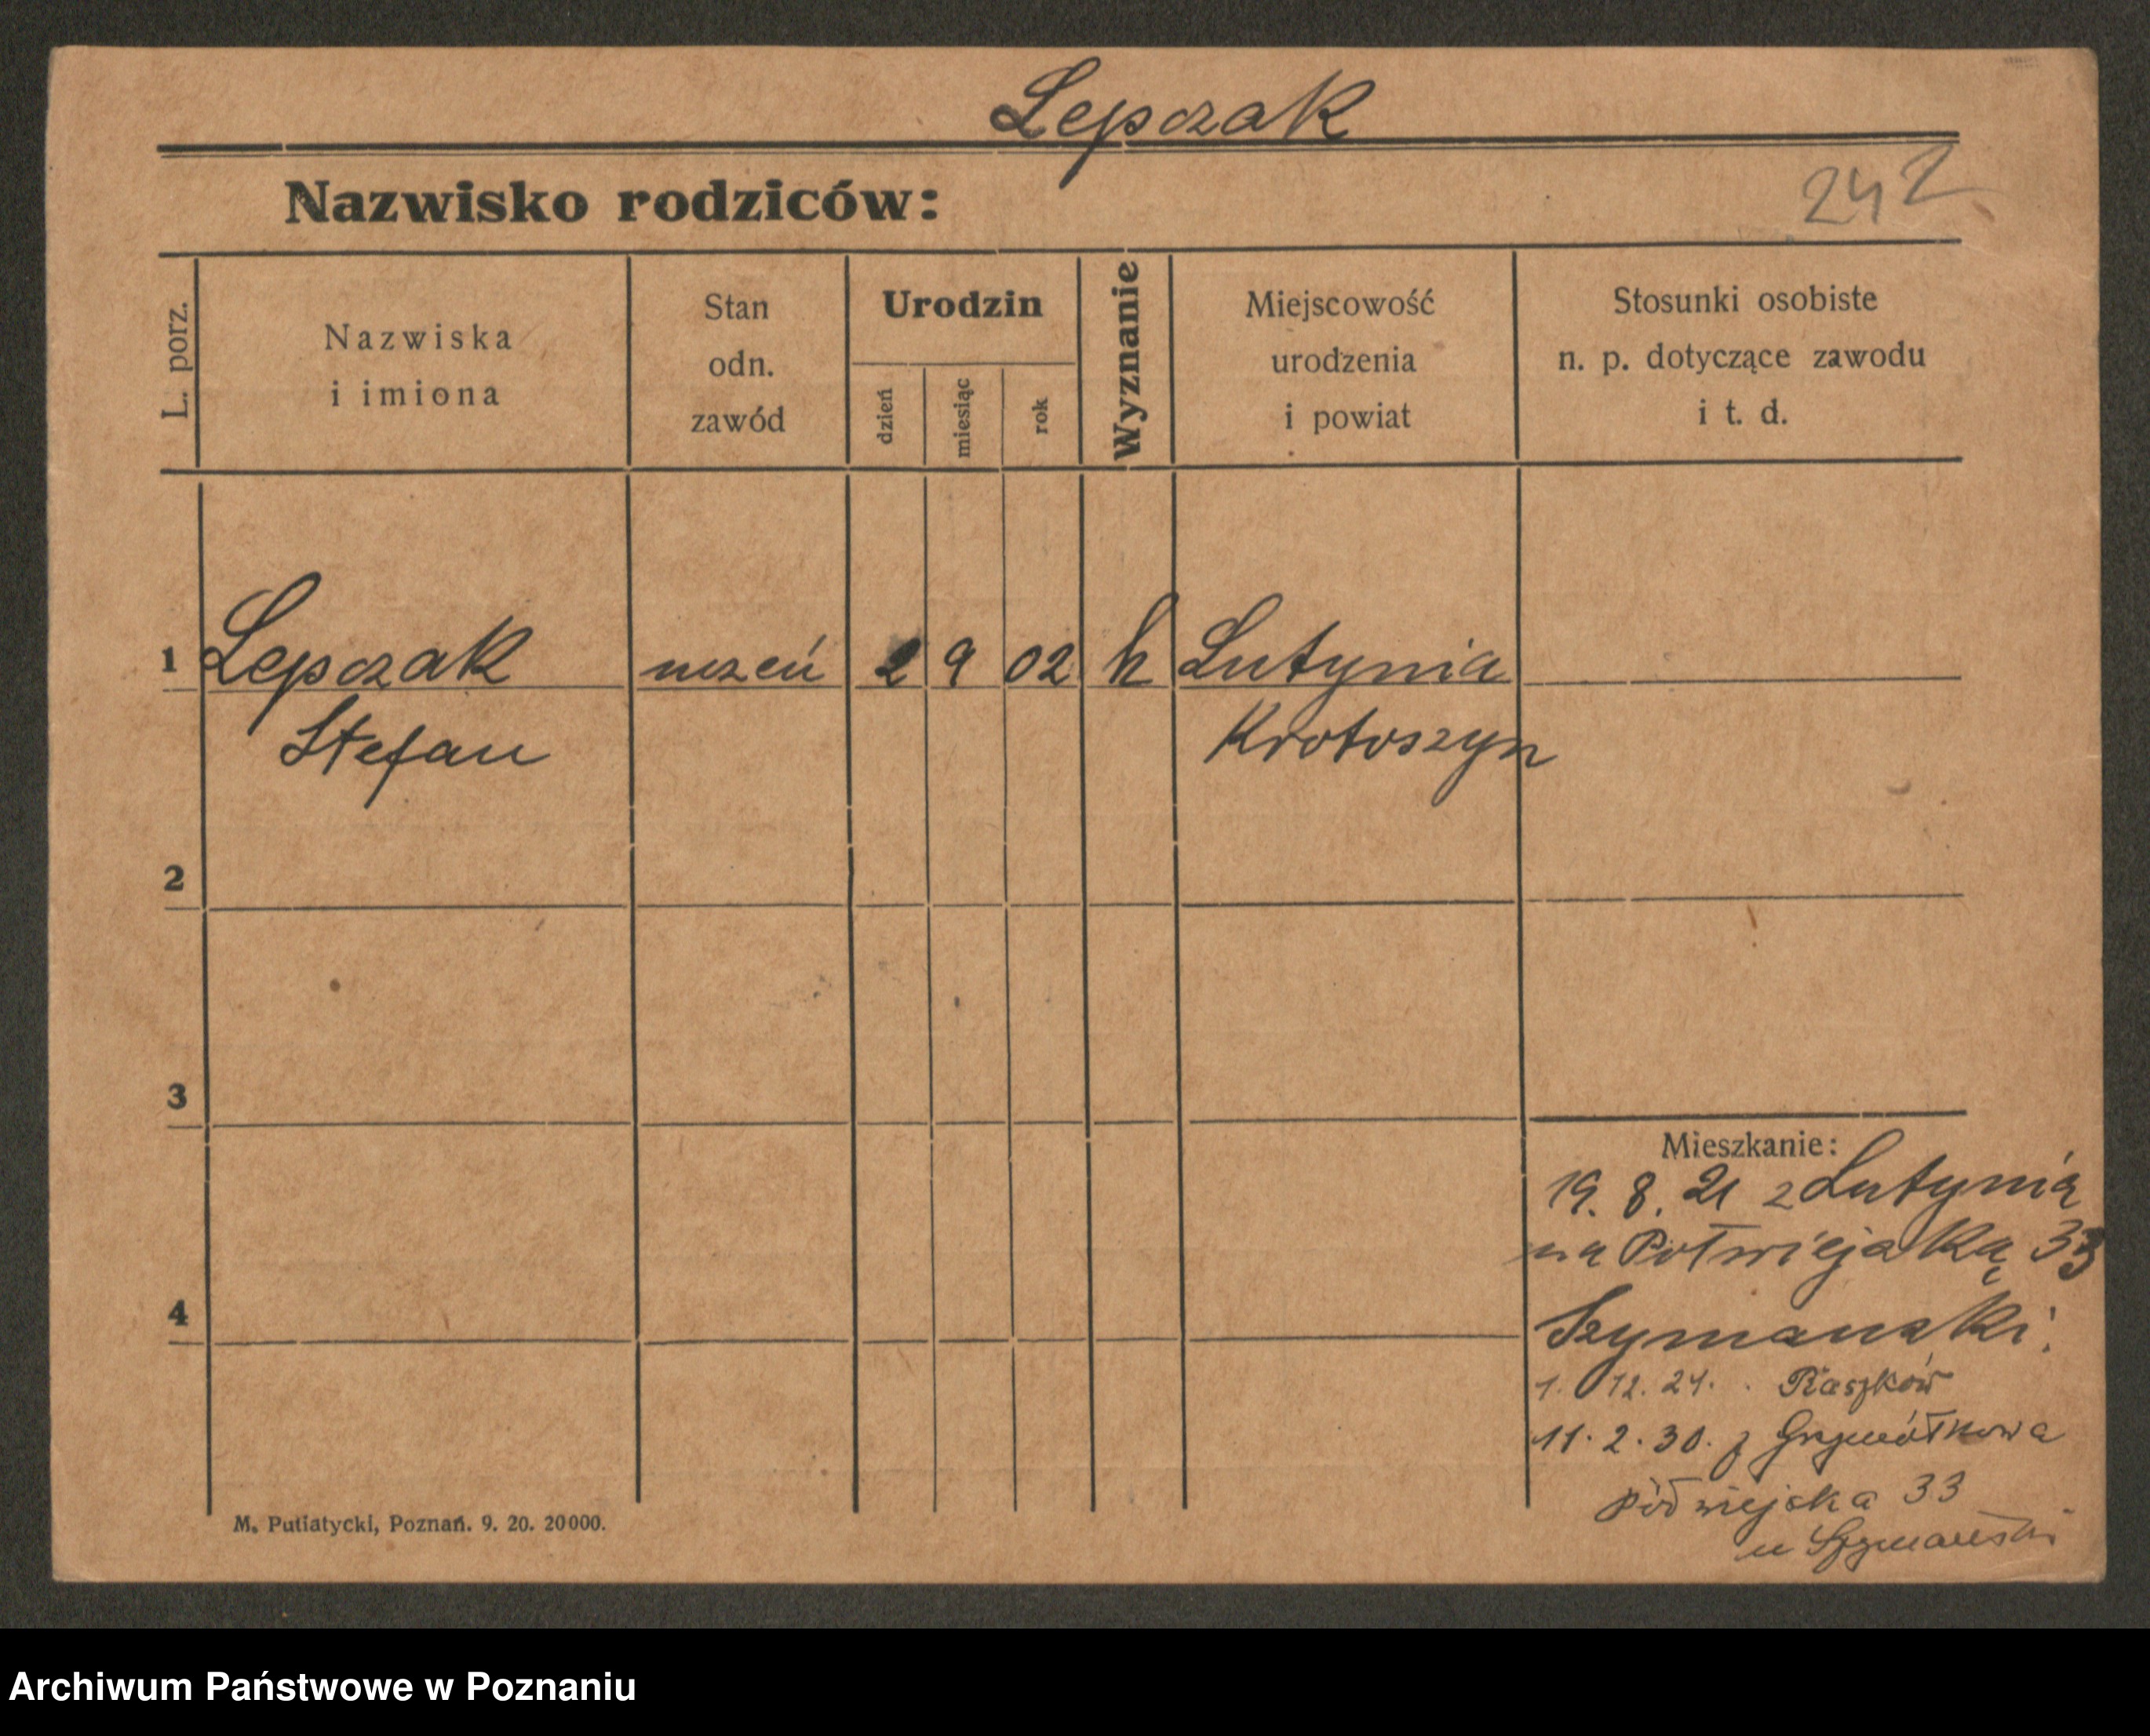 Lepczak
Nazwisko rodziców:
242
L. porz.
Nazwiska
i imiona
Stan
odn.
zawód
Urodzin
dzień
miesiąc
rok
Wyznanie
Miejscowość
urodzenia
i powiat
Stosunki osobiste
n. p. dotyczące zawodu
i t. d.
1 Lepczak uczeń 2 9 02 k Lutynia
Stefan Krotoszyn
2
3
Mieszkanie:
19. 8. 21 z Lutynia
na Połwiejską 33
4
Szymanski.
1. 12. 21. Raszków
11. 2. 30. z
Półwiejska 33
u Szymański
M. Putiatycki, Poznań. 9. 20. 20000.
Archiwum Państwowe w Poznaniu